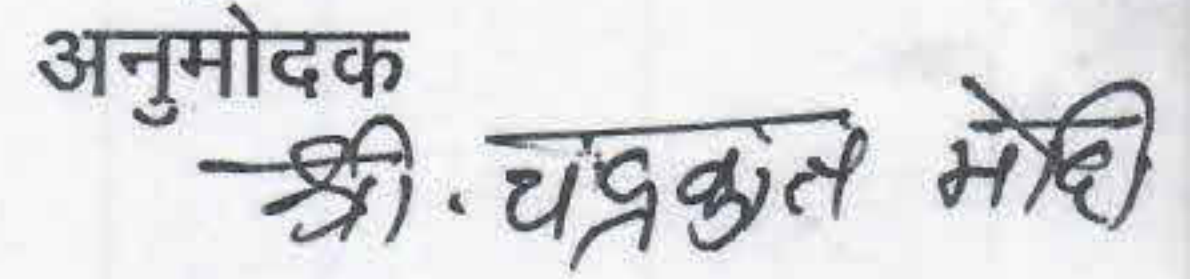 अनुमोदक
श्री. चंद्रकांत मोदी